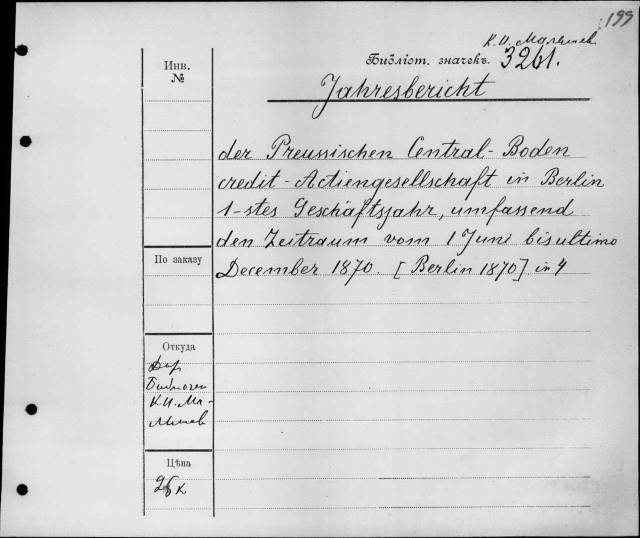 199
К. И. Малышев
Библіот. значекъ. 3261.
Инв.
№
Jahresbericht
der Preussischen Central-Boden
credit-Actiengesellschaft in Berlin
1-stes Geschäftsjahr, umfassend
den Zeitraum vom 1 Juni bis ultimo
December 1870. [Berlin 1870] in 4
По заказу
Откуда
Дар
К. И. Ма-
лышев
Цѣна
25 к